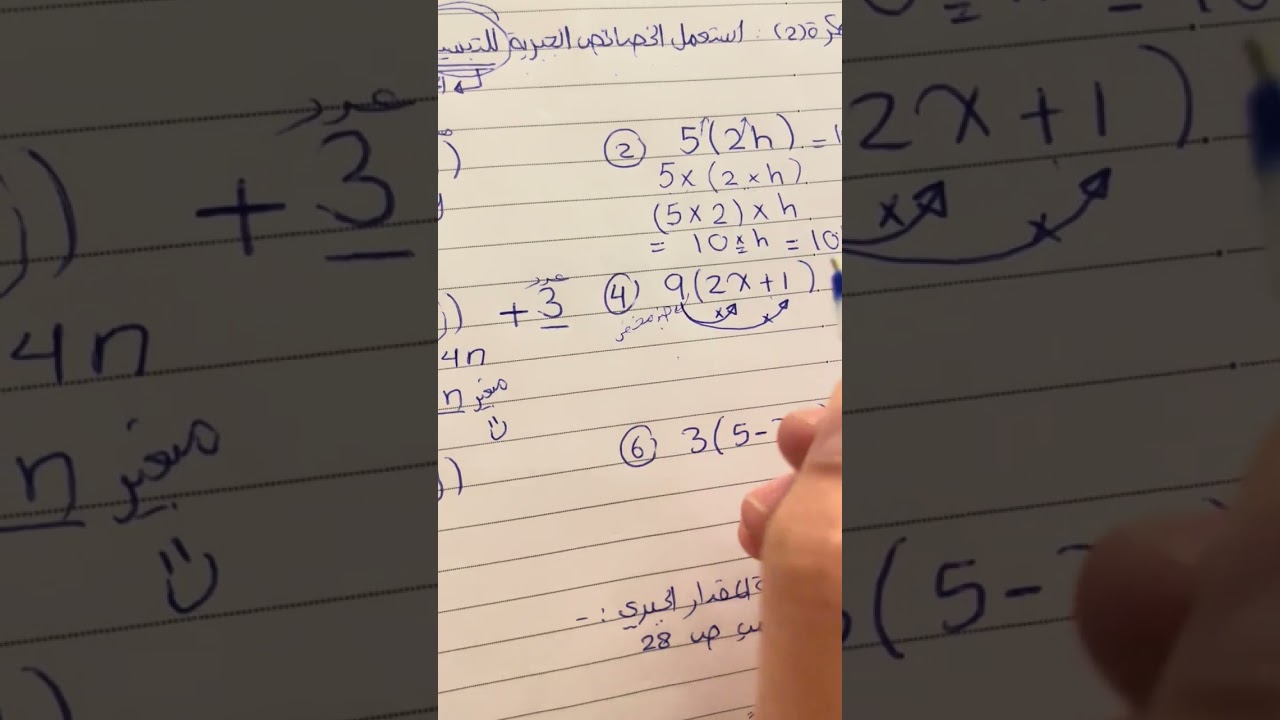 استعمل الخصائص الجبرية للتبسيط : (2)
② 5(2h) = 1
5 × (2 × h)
(5 × 2) × h
= 10 × h = 10
عدد
+ 3
④ 9(2x+1)
4n
n متغير
⑥ 3(5-
المقدار الجبري :-
ص 28